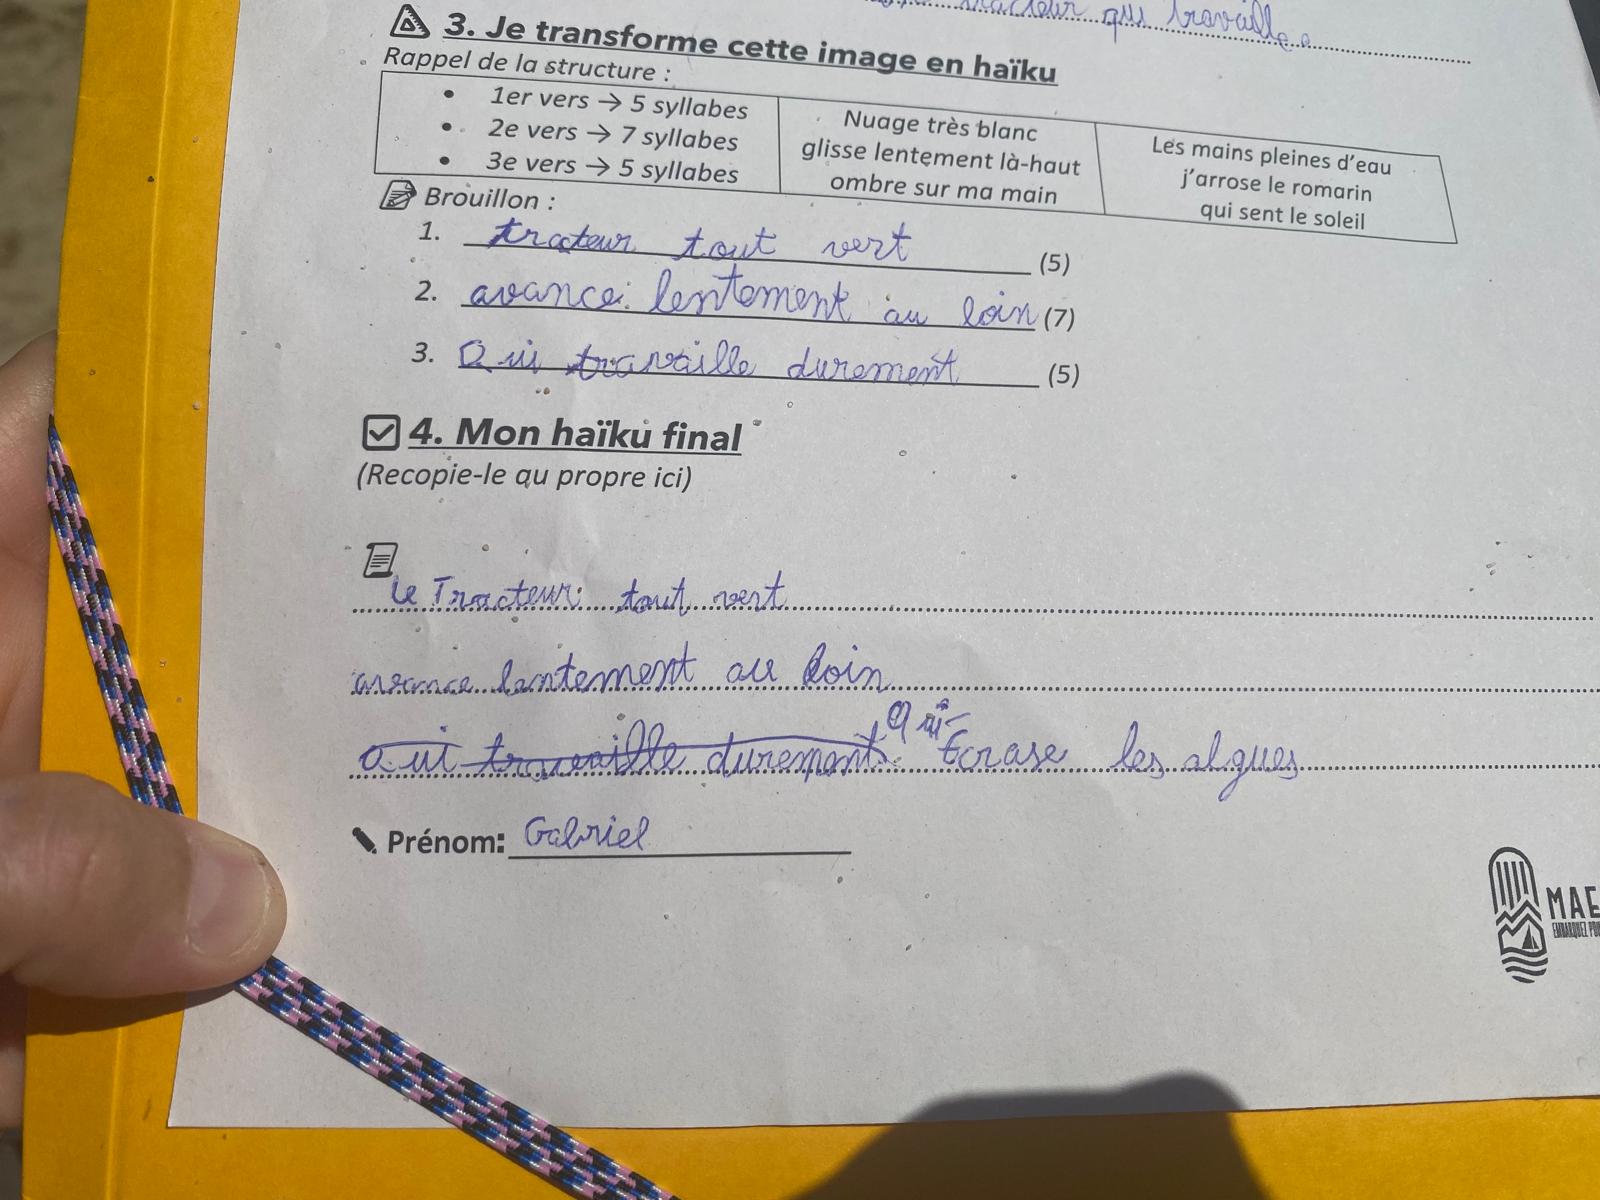 tracteur qui travaille.
3. Je transforme cette image en haïku
Rappel de la structure :
• 1er vers → 5 syllabes
• 2e vers → 7 syllabes
• 3e vers → 5 syllabes
Nuage très blanc
glisse lentement là-haut
ombre sur ma main
Les mains pleines d'eau
j'arrose le romarin
qui sent le soleil
Brouillon :
1. tracteur tout vert (5)
2. avance lentement au loin (7)
3. Qui travaille durement (5)
4. Mon haïku final
(Recopie-le au propre ici)
le Tracteur tout vert
avance lentement au loin
Qui travaille durement. Qui Écrase les algues
Prénom: Gabriel
MAE
EMBARQUEZ POU